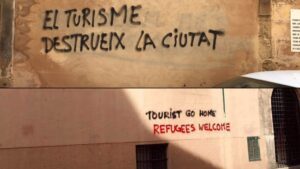 EL TURISME
DESTRUEIX LA CIUTAT
TOURIST GO HOME
REFUGEES WELCOME